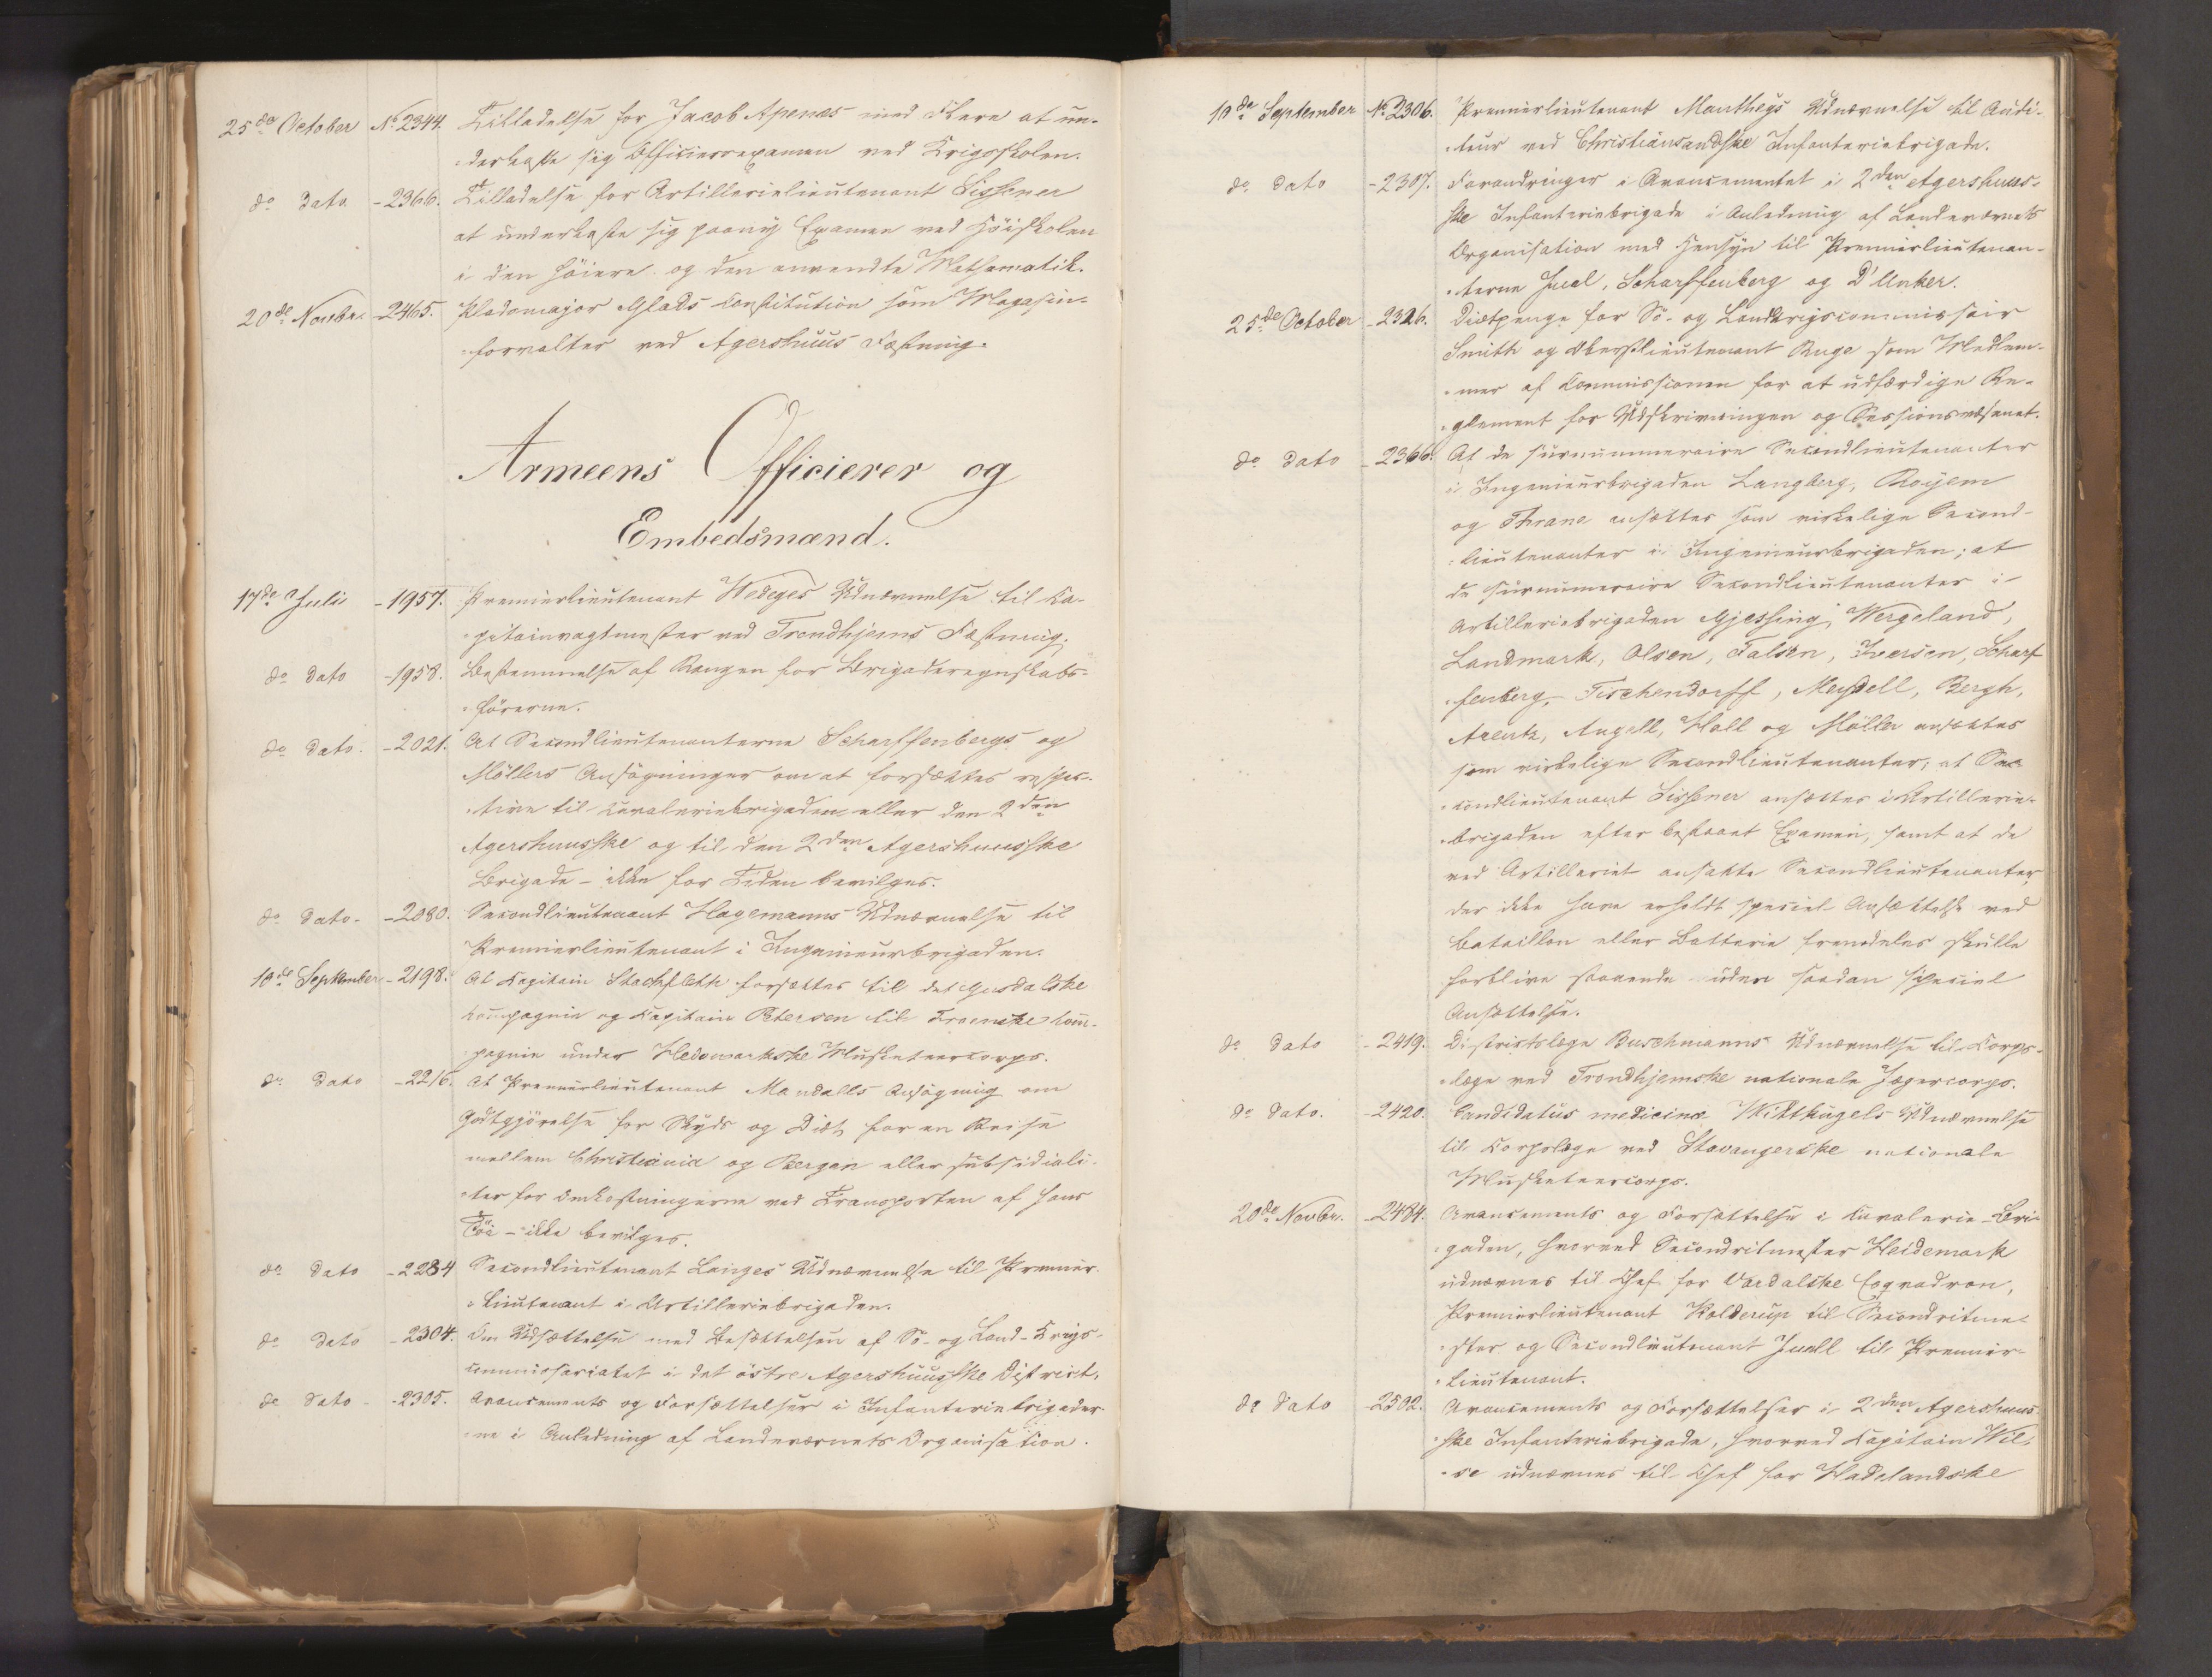 25de October No 2344. Tilladelse for Jacob Apenæs med Flere at un-
-derkaste sig Officiersexamen ved Krigsskolen.
do Dato -2366. Tilladelse for Artillerielieutenant Sissener
at underkaste sig paany Examen ved Höiskolen
i den höiere og den anvendte Mathematik.
20de Novbr. -2465. Pladsmajor Glads Constitution som Magasin-
-forvalter ved Agershuus Fæstning.
Armeens Officierer og
Embedsmænd.
17de Juli -1957. Premierlieutenant Wedeges Udnævnelse til Ca-
-pitainvagtmester ved Trondhjems Fæstning.
do Dato -1958. Bestemmelse af Rangen for Brigaderegnskabs-
-förerne.
do Dato. -2021. At Secondlieutenanterne Scharffenbergs og
Möllers Ansögninger om at forsættes respec-
-tive til Cavaleriebrigaden eller den 2den
Agershuusske og til den 2den Agershuusske
Brigade – ikke for Tiden bevilges.
do Dato. -2080. Secondlieutenant Hagemanns Udnævnelse til
Premierlieutenant i Ingenieurbrigaden.
10de September -2198. At Capitain Stockfleth forsættes til det Gusdalske
Compagnie og Capitain Petersen til Troenske Com-
-pagnie under Hedemarkske Musketeercorps.
do Dato -2216. At Premierlieutenant Mandalls Ansögning om
Godtgjörelse for Skyds og Diæt for en Reise
mellem Christiania og Bergen eller subsidiali-
-ter for Omkostningerne ved Transporten af hans
Töi – ikke bevilges.
do Dato -2284 Secondlieutenant Langes Udnævnelse til Premier-
-lieutenant i Artilleriebrigaden.
do Dato -2304. Om Udsættelse med Besættelsen af Sö- og Land-Krigs-
commissariatet i det östre Agershuusske District.
do Dato -2305. Avancements og Forsættelser i Infanteriebrigader-
-ne i Anledning af Landeværnets Organisation.
10de September No 2306. Premierlieutenant Mantheys Udnævnelse til Audi-
-teur ved Christiansandske Infanteriebrigade.
do Dato -2307. Forandringer i Avancementet i 2den Agershuus-
ske Infanteriebrigade i Anledning af Landeværnets
Organisation med Hensyn til Premierlieutenan-
-terne Juel, Scharffenberg og D'Unker.
25de October -2326. Diætpenge for Sö- og Landkrigscommissair
Smith og Oberstlieutenant Ruge som Medlem-
-mer af Commissionen for at udfærdige Re-
-glement for Udskrivningen og Sessionsvæsenet.
do Dato -2366. At de surnummeraire Secondlieutenanter
i Ingenieurbrigaden Langberg, Rojem
og Thrane ansættes som virkelige Second-
-lieutenanter i Ingenieurbrigaden; at
de surnumeraire Secondlieutenanter i
Artilleriebrigaden Gjessing, Wergeland,
Landmark, Olsen, Falsen, Iversen, Scharf
-fenberg, Tischendorff, Meydell, Bergh,
Arentz, Angell, Hall og Möller ansættes
som virkelige Secondlieutenanter; at Se-
-condlieutenant Sissener ansættes i Artillerie-
-brigaden efter bestaaet Examen, samt at de
ved Artilleriet ansatte Secondlieutenanter,
der ikke have erholdt speciel Ansættelse ved
Bataillon eller Batterie fremdeles skulle
forblive staaende uden saadan speciel
Ansættelse.
do Dato -2419. Districtslæge Buschmanns Udnævnelse til Corps-
-læge ved Trondhjemske nationale Jægercorps.
do Dato. -2420. Candidatus medicinæ Witthugels Udnævnelse
til Corpslæge ved Stavangerske nationale
Musketeercorps.
20de Novbr. -2484. Avancements og Forsættelse i Cavalerie-Bri-
-gaden, hvorved Secondritmester Heidemark
udnævnes til Chef for Værdalske Esqvadron,
Premierlieutenant Kolderup til Secondritme-
-ster og Secondlieutenant Juell til Premier-
-lieutenant.
do Dato -2502. Avancements og Forsættelser i 2den Agershuus-
-ske Infanteriebrigade, hvorved Capitain Wil-
-se udnævnes til Chef for Hadelandske